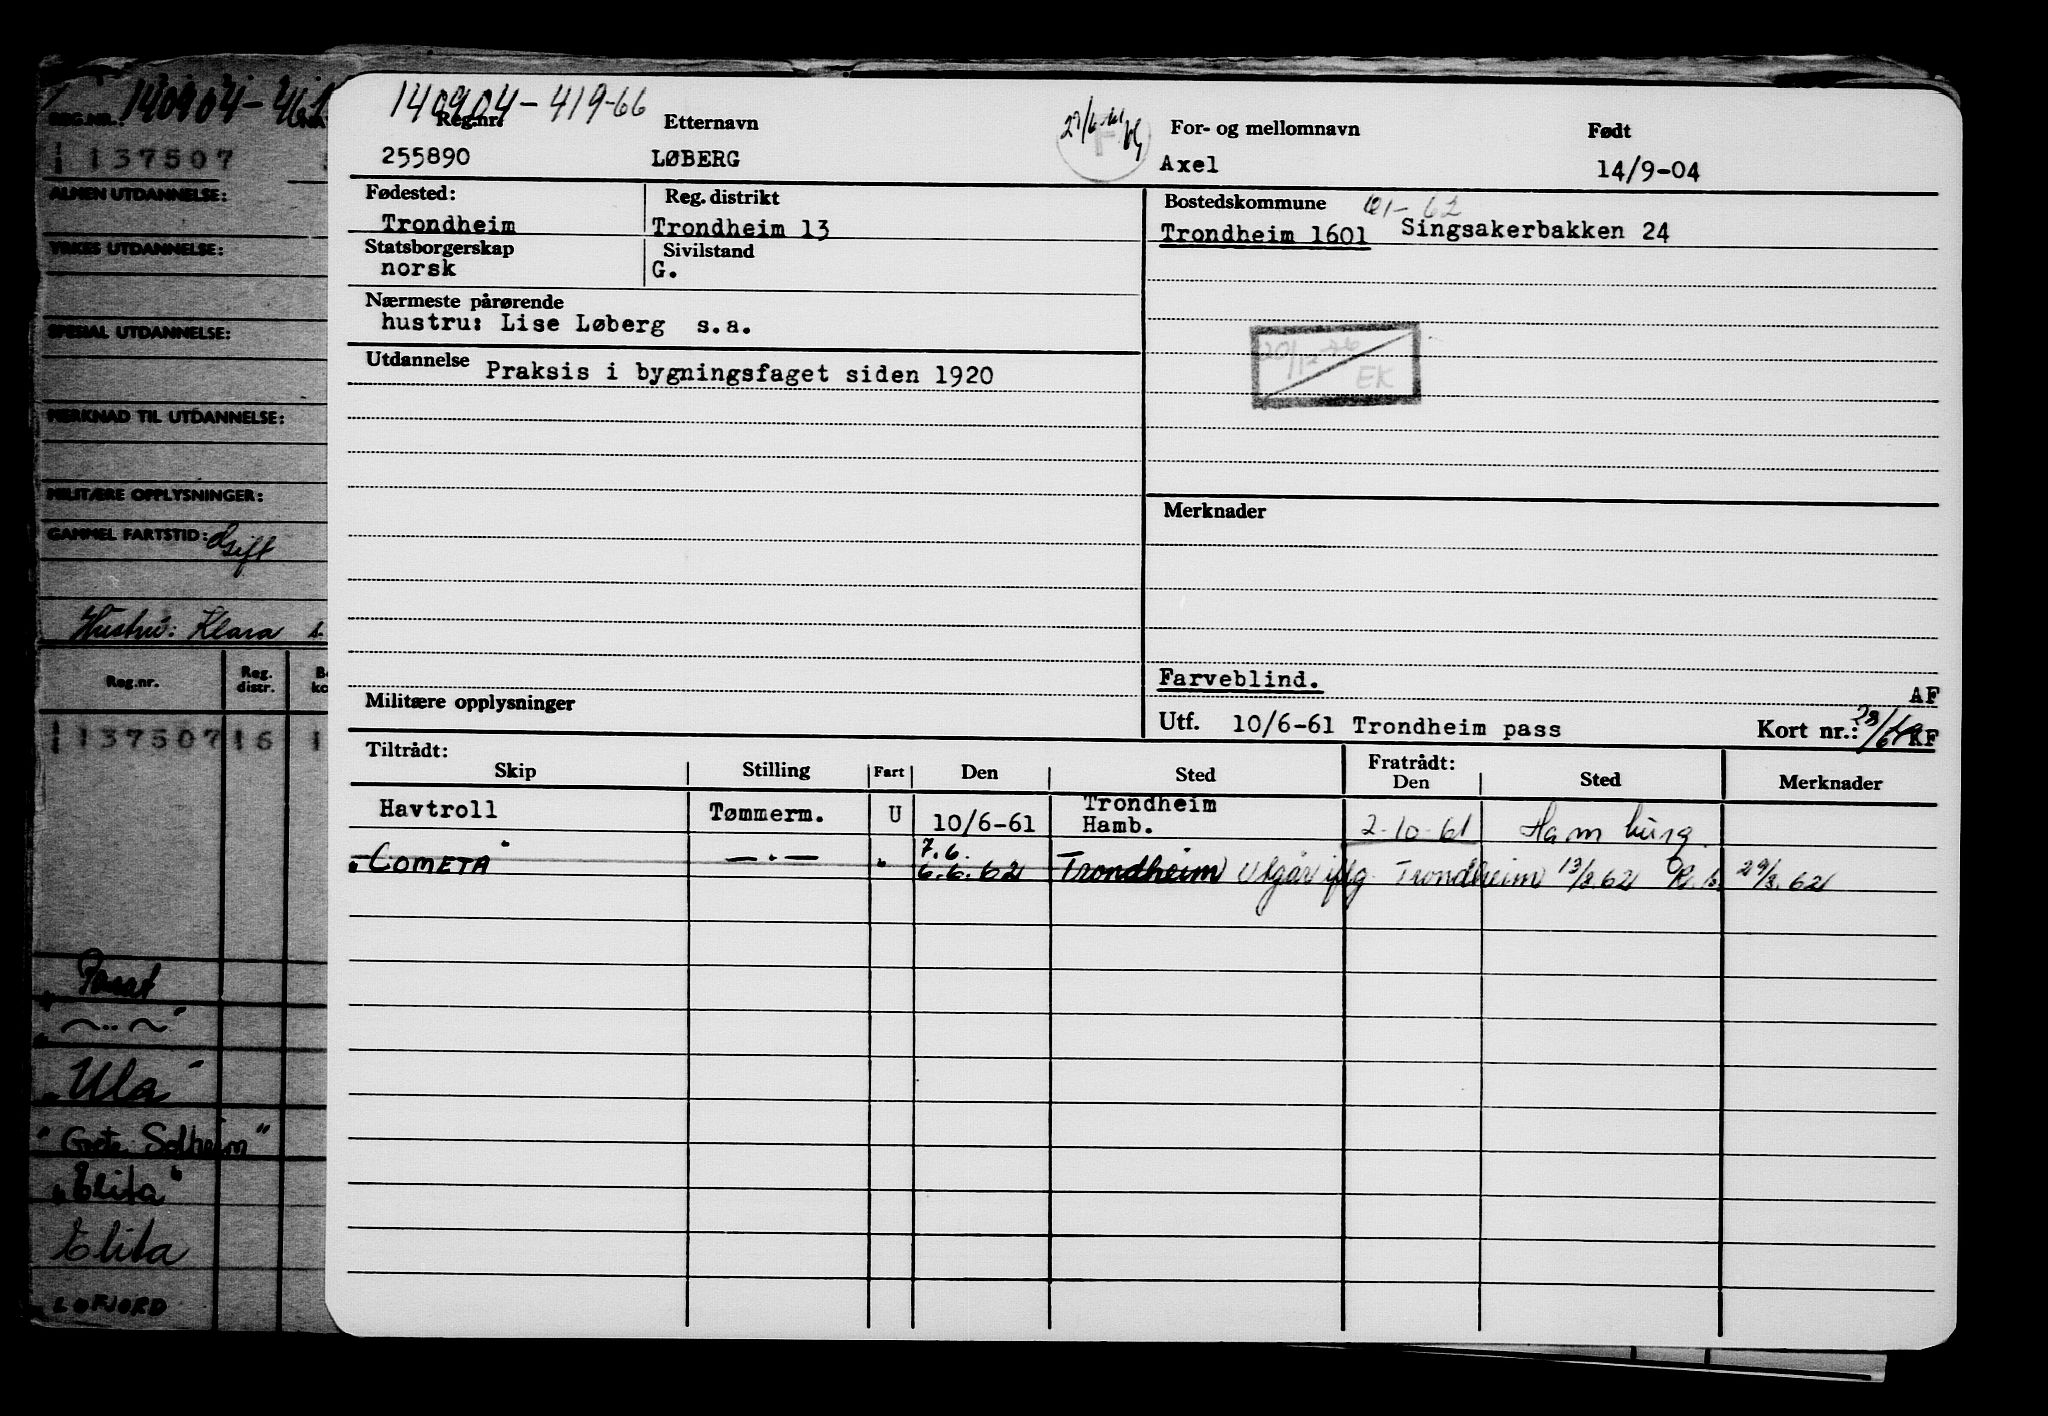 140904-419-66
Reg.nr. Etternavn For- og mellomnavn Født
255890 LØBERG Axel 14/9-04
Fødested: Reg. distrikt Bostedskommune 61-62
Trondheim Trondheim 13 Trondheim 1601 Singsakerbakken 24
Statsborgerskap Sivilstand
norsk G.
Nærmeste pårørende
hustru: Lise Løberg s.a.
Utdannelse Praksis i bygningsfaget siden 1920
EK
Merknader
Farveblind.
AF
Militære opplysninger
Utf. 10/6-61 Trondheim pass Kort nr.: KF
Tiltrådt: Fratrådt:
Skip Stilling Fart Den Sted Den Sted Merknader
Havtroll Tømmerm. U 10/6-61 Trondheim Hamb. 2-10-61 Hamburg
7.6.
"COMETA" —"— " 6.6.62 Trondheim Utgår iflg. Trondheim 13/8 62 R.b. 29/8.62
140904-461
REG.NR.:
137507
ALMEN UTDANNELSE:
YRKES UTDANNELSE:
SPESIAL UTDANNELSE:
MERKNAD TIL UTDANNELSE:
MILITÆRE OPPLYSNINGER:
GAMMEL FARTSTID:
Gift
Hustru: Klara s.
Reg.nr. Reg. distr.
137507 16 1
"Ula"
"Grete Solheim"
"Elita"
Elita
LOFJORD